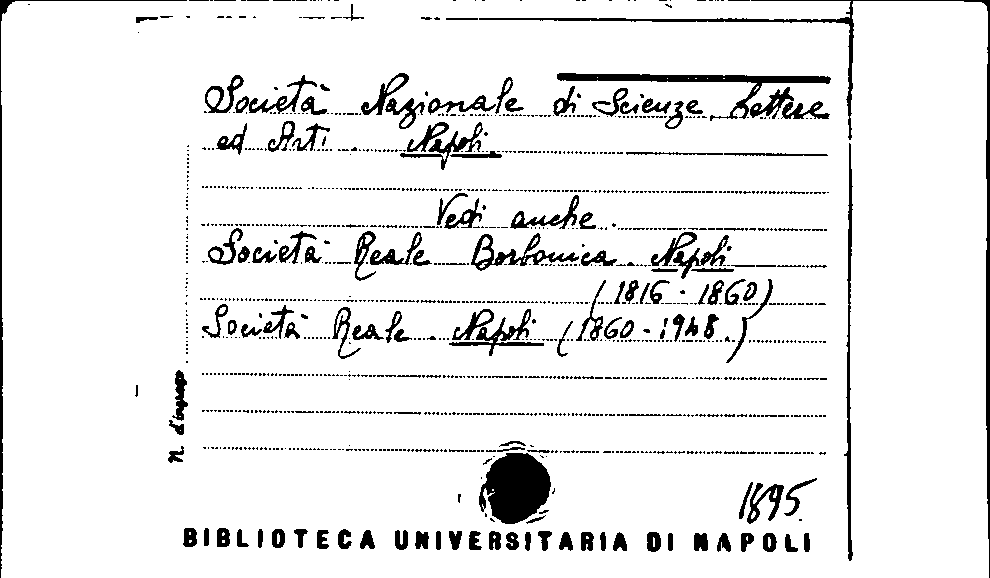 Società Nazionale di Scienze, Lettere
ed Arti. Napoli.
Vedi anche.
Società Reale Borbonica. Napoli
(1816 - 1860)
Società Reale. Napoli (1860 - 1948.)
N. d'ingresso
1895.
BIBLIOTECA UNIVERSITARIA DI NAPOLI